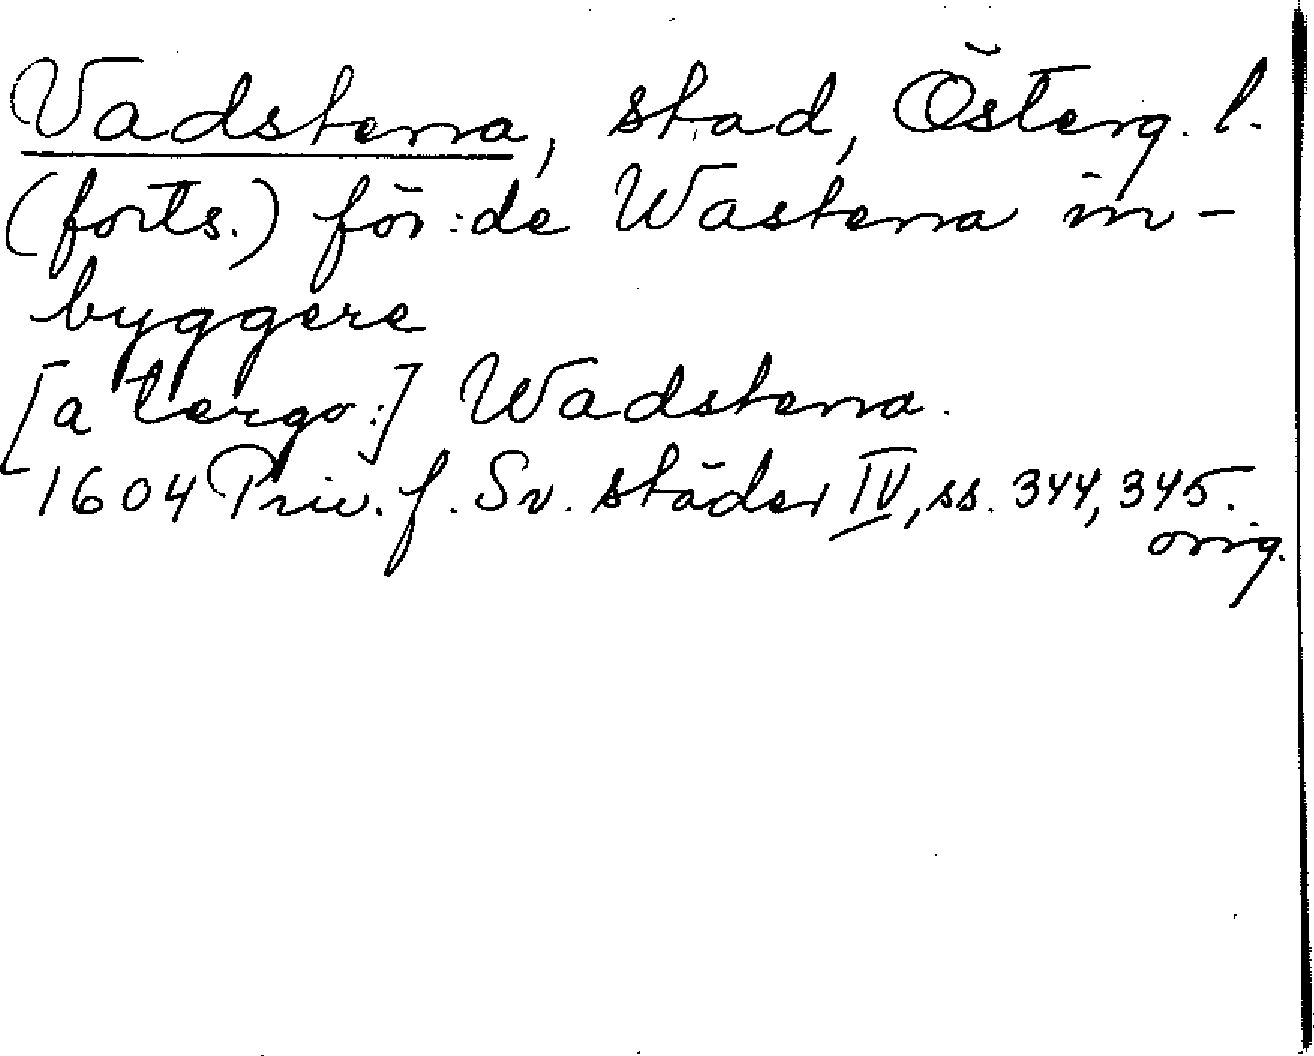 Vadstena, stad, Österg. l.
(forts.) för:de Wastena in-
byggere
[a tergo:] Wadstena.
1604 Priv. f. Sv. städer IV, ss. 344, 345.
orig.